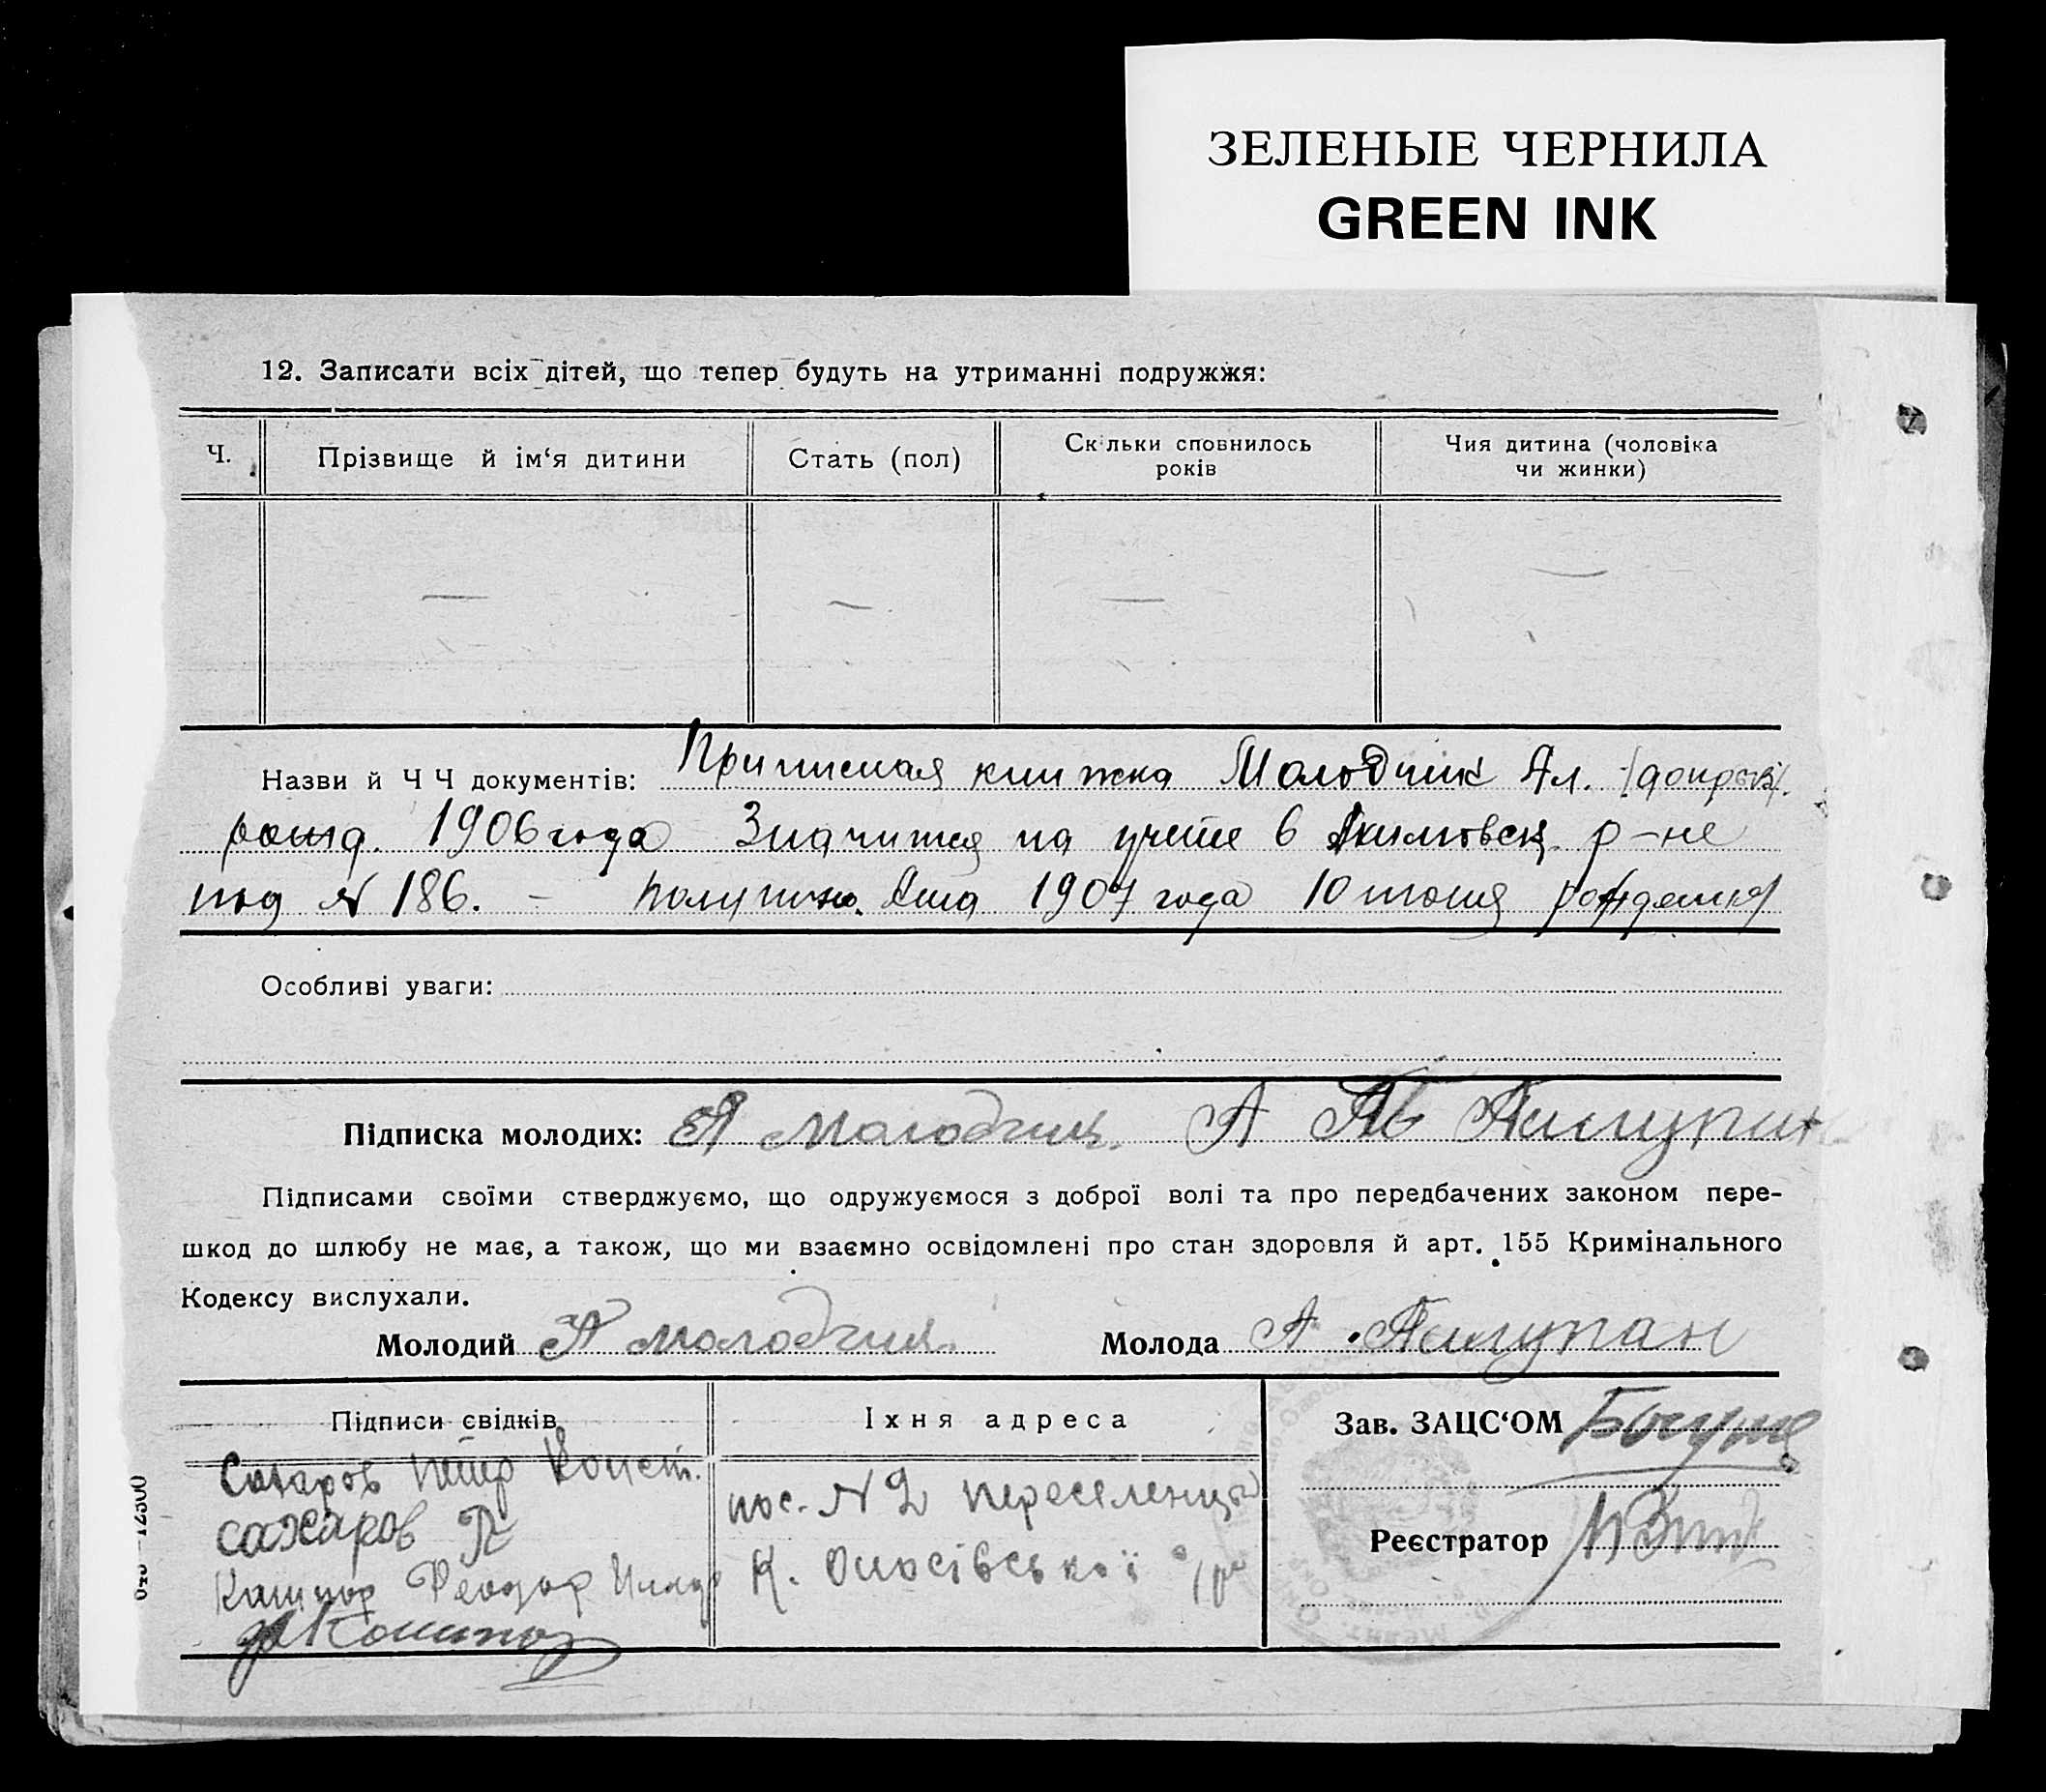 ЗЕЛЕНЫЕ ЧЕРНИЛА
GREEN INK
12. Записати всіх дітей, що тепер будуть на утриманні подружжя:
Ч. Прізвище й ім‘я дитини Стать (пол) Скільки сповнилось років Чия дитина (чоловіка чи жинки)
— — — —
Назви й Ч Ч документів: Приписная книжка Молодчик Ал.
рожд. 1906 года Значится на учете в Акимовск. р-не
под N 186. — года 1907 года 10 июня рождения
Особливі уваги:
Підписка молодих: А Молодчик. А
Підписами своїми стверджуємо, що одружуємося з доброї волі та про передбачених законом пере-
шкод до шлюбу не має, а також, що ми взаємно освідомлені про стан здоровля й арт. 155 Кримінального
Кодексу вислухали.
Молодий А Молодчик Молода А.
Підписи свідків Їхня адреса Зав. ЗАЦС‘ОМ
Сахаров Петр Конст. пос. N 2 переселенцы
сахаров П
Реєстратор
Кашпор Феодор К.